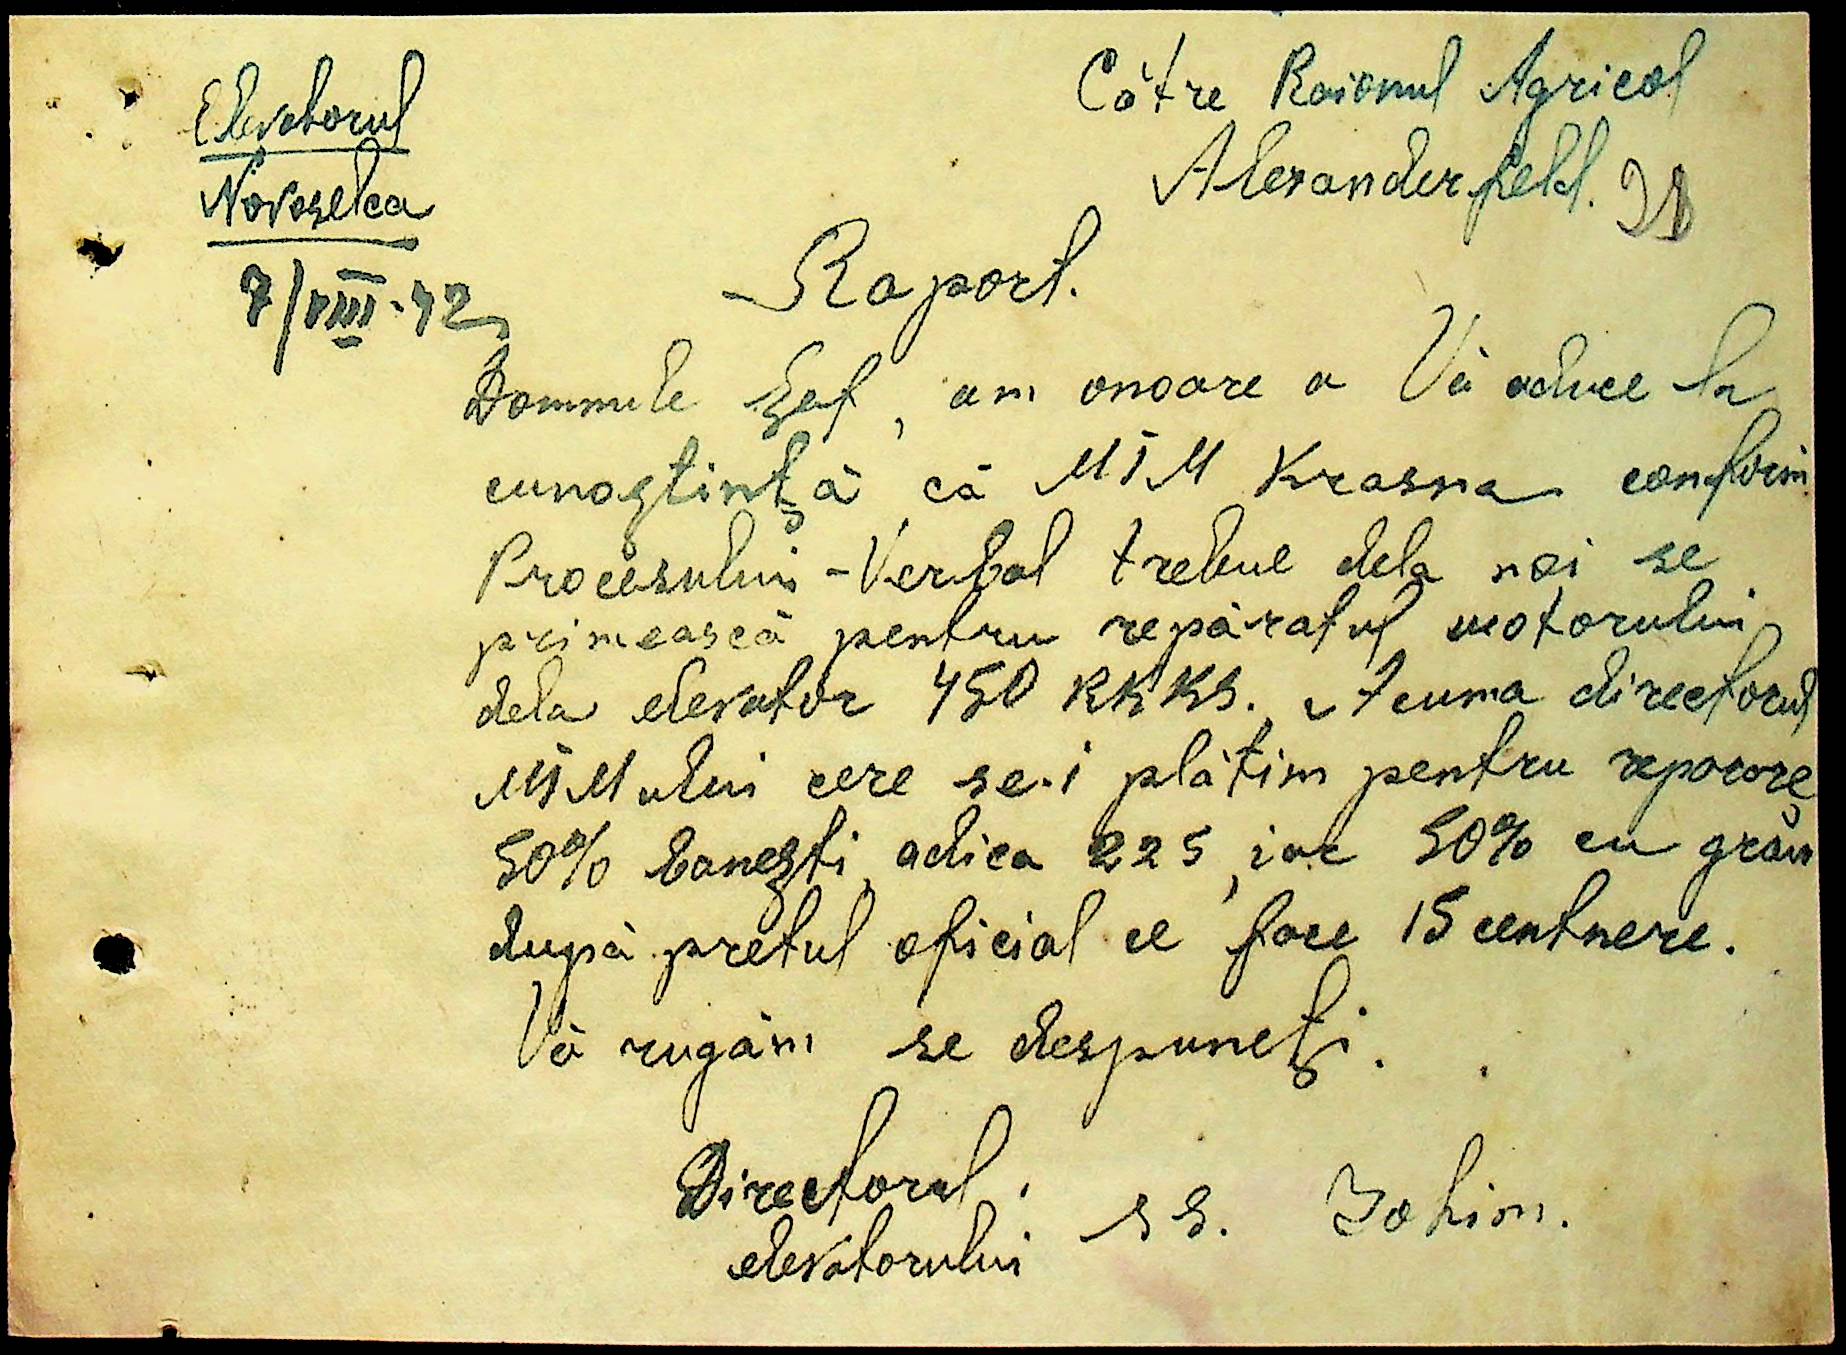 Elevatorul
Novoselca
7/VIII-42
Către Raionul Agricol
Alexanderfeld.
Raport.
Domnule Șef, am onoare a Vă aduce la
cunoștință că MTM Krasna conform
Procesului-Verbal trebue dela noi se
primească pentru repăratul motorului
dela elevator 450 RKKS. Acuma directorul
MTMului cere se-i plătim pentru reparare
50% banești, adica 225, iar 50% cu grâu
după prețul oficial ce face 15 centnere.
Vă rugăm se despuneți.
Directorul
elevatorului
ss. Iohim.